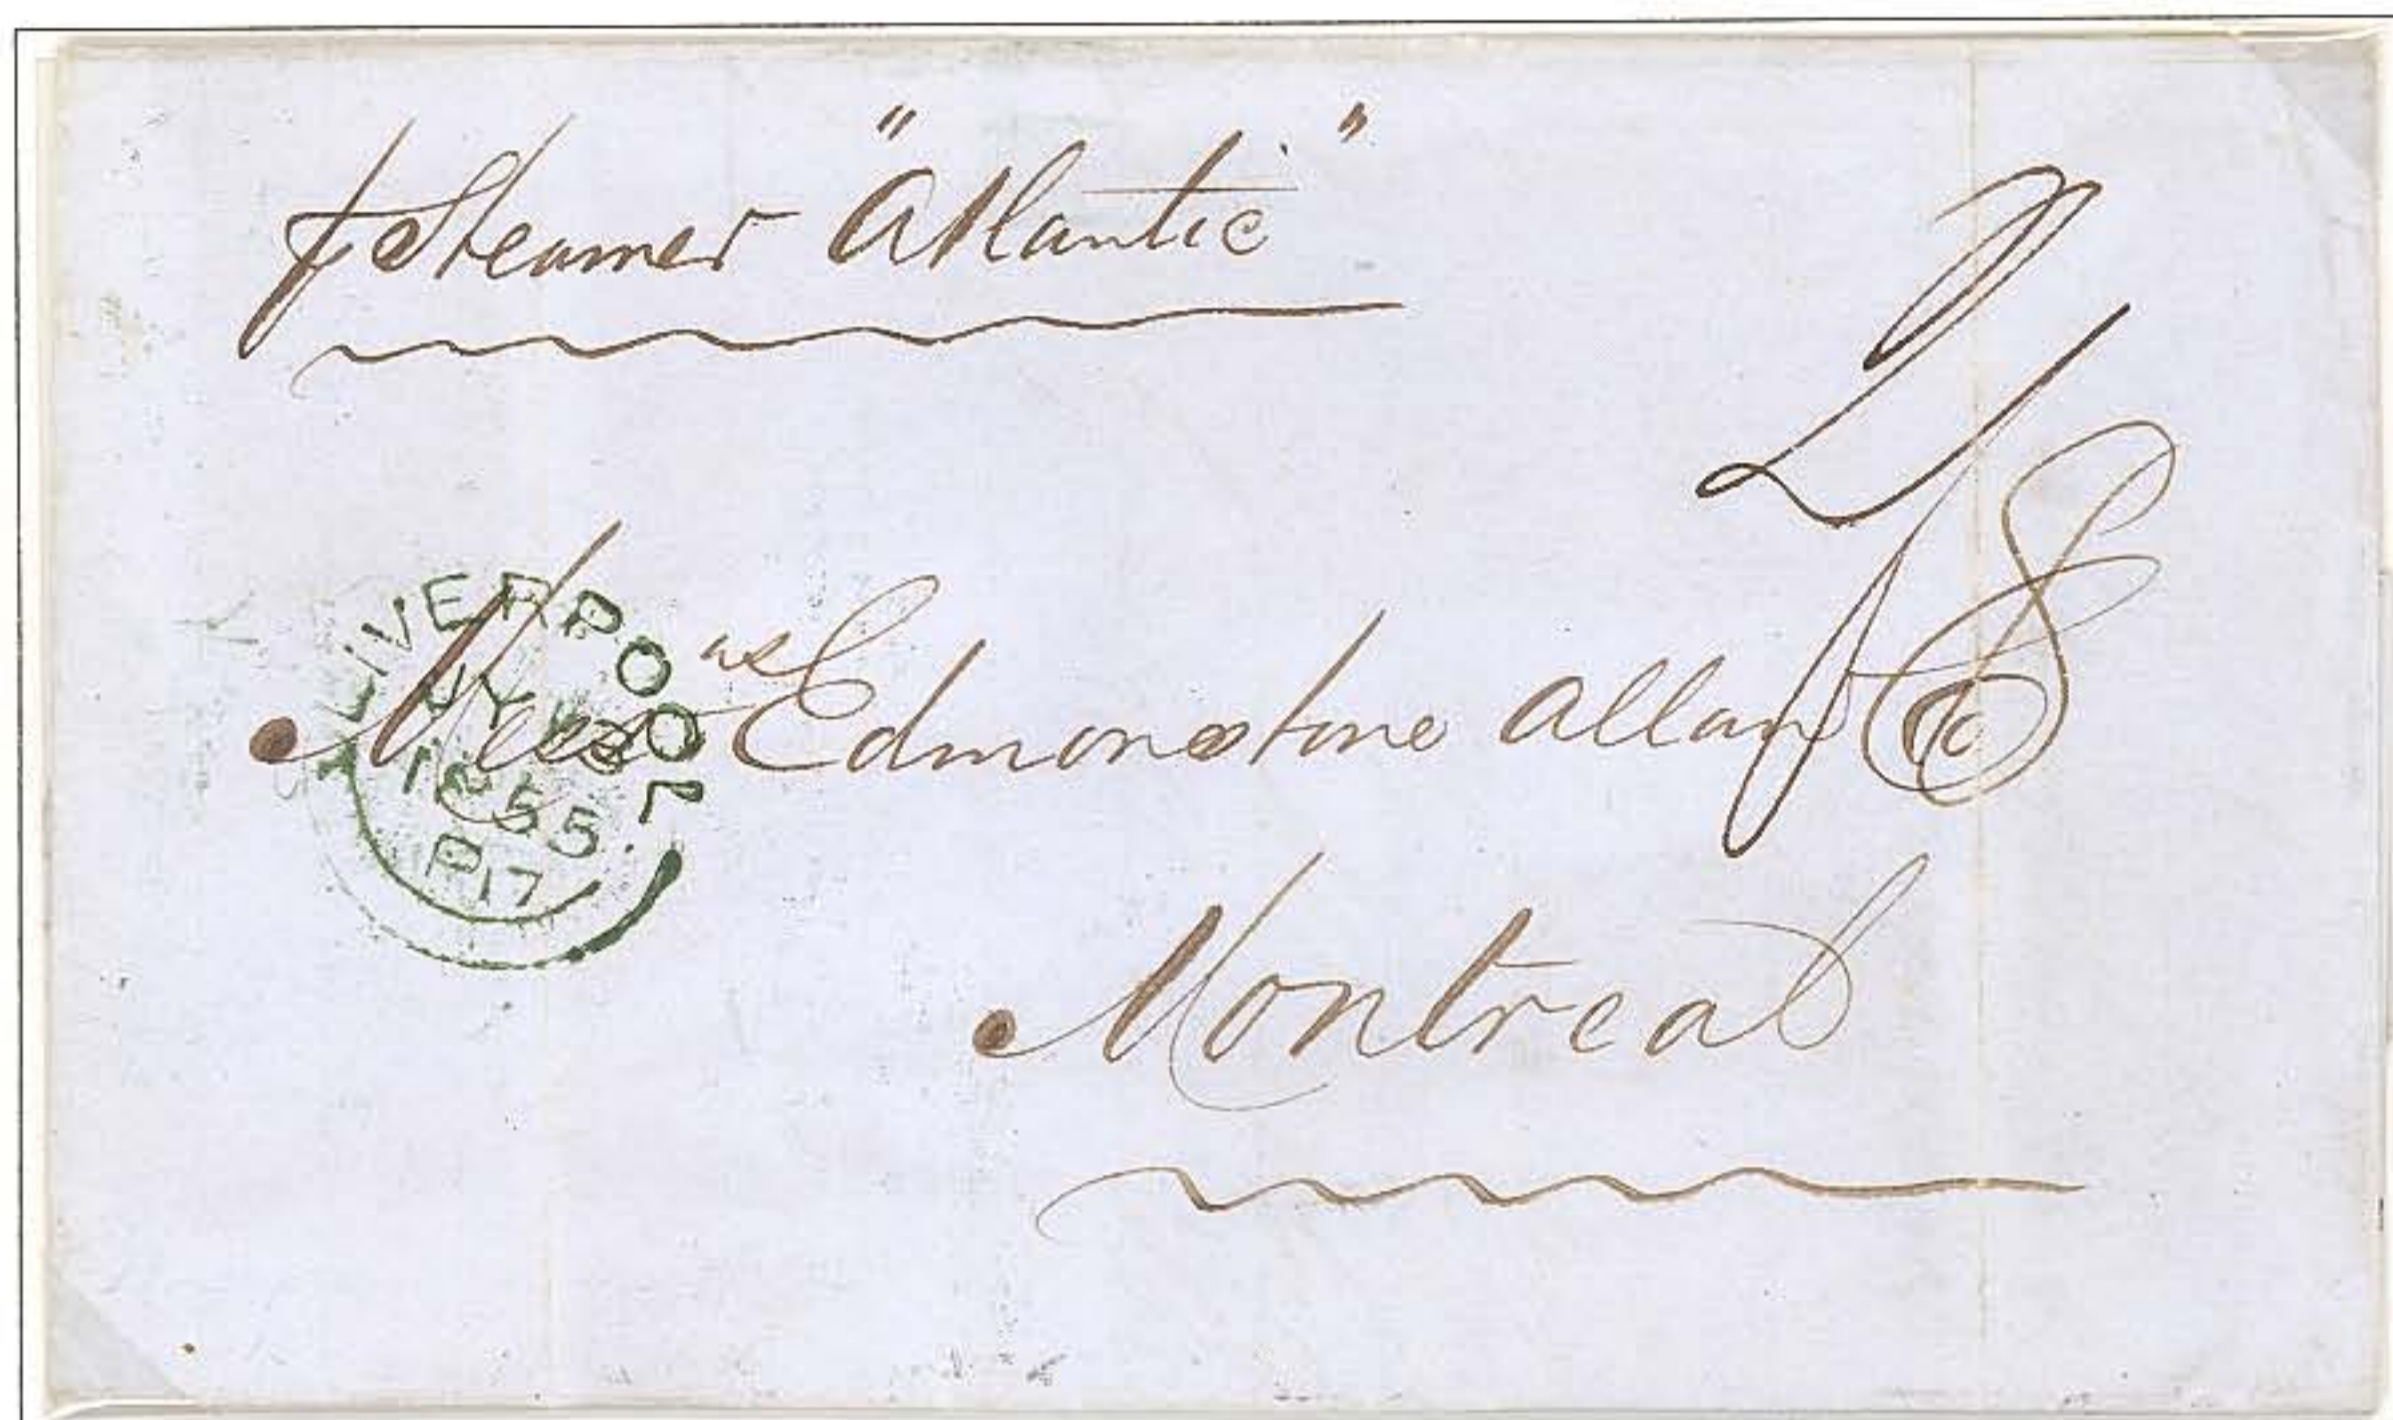 p Steamer "Atlantic"
2/8
LIVERPOOL
JY
1855.
P17
Mess rs Edmonstone Allan & Co
Montreal